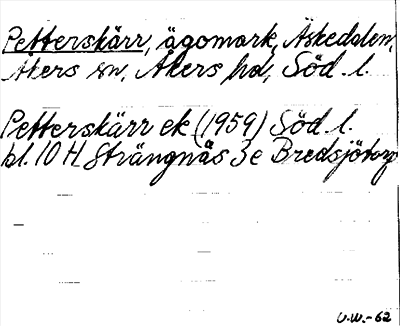 Petterskärr, ägomark, Äskedalen,
Åkers sn, Åkers hd, Söd. l.
Petterskärr ek. (1959) Söd. l.
bl. 10 H Strängnäs 3e Bredsjötorp
U.W.-62